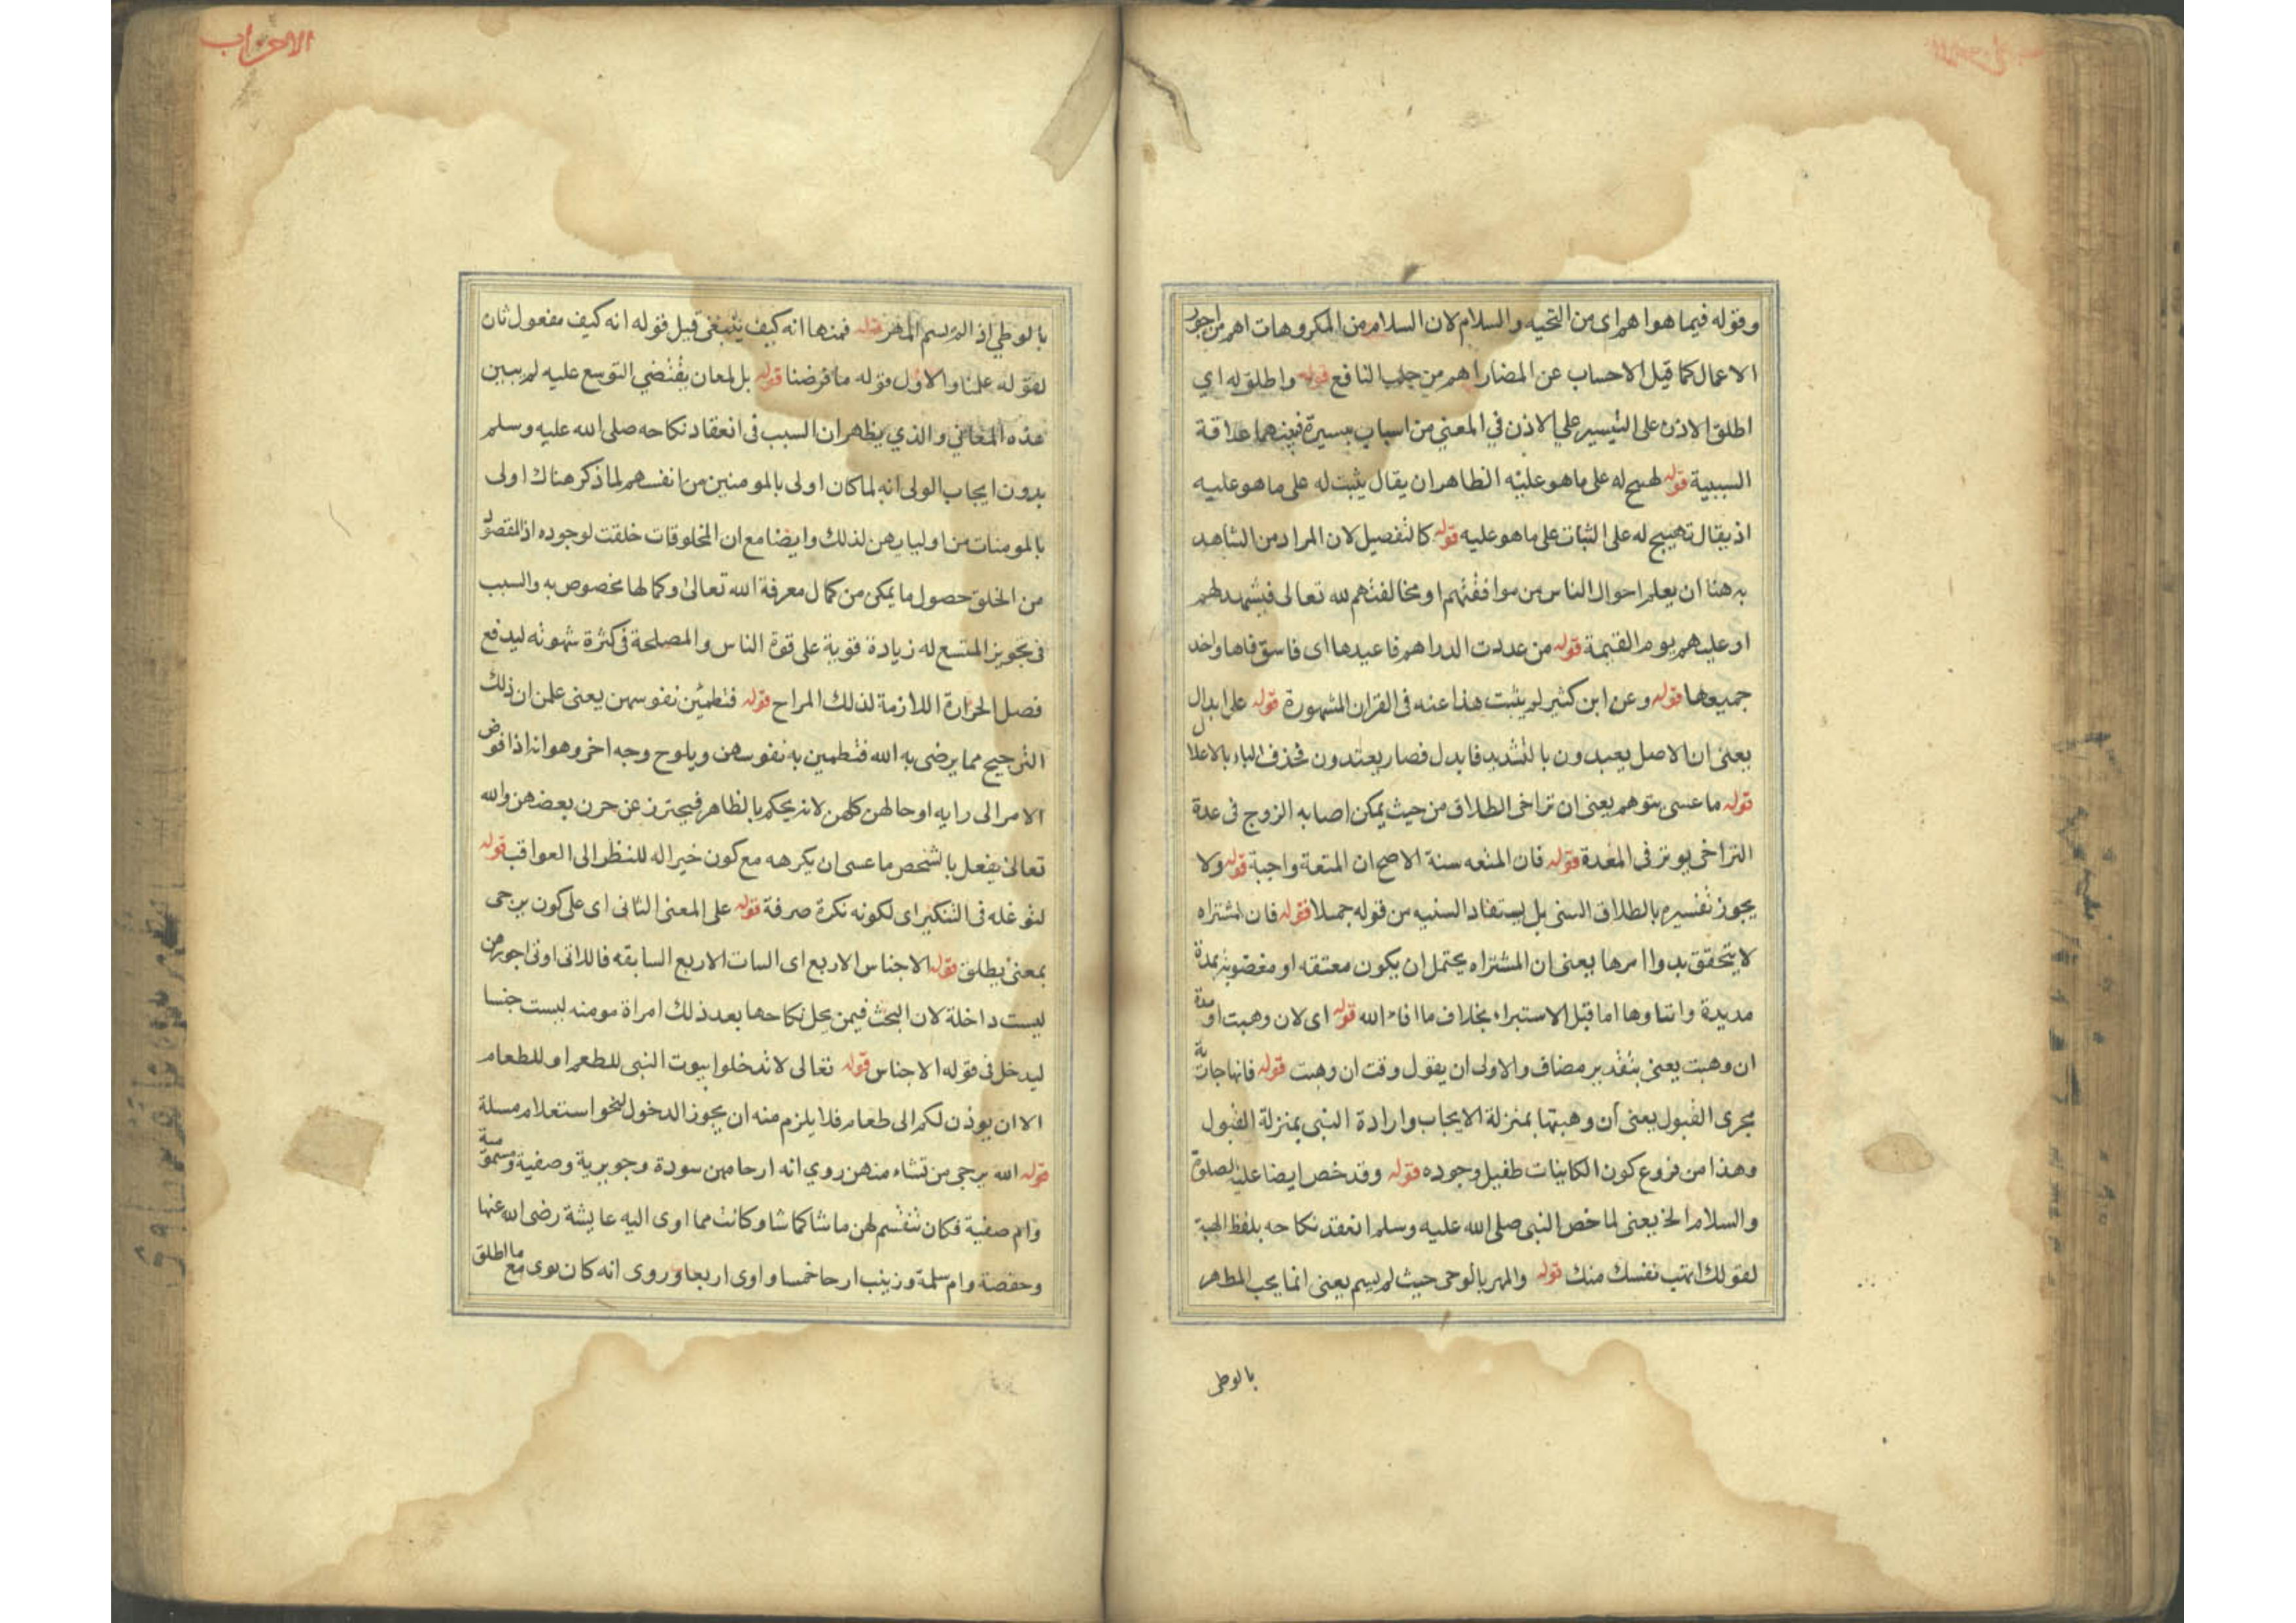 وقوله فيما هو اهم اى من التحيه والسلام لان السلام من المكروهات اهم من اجور
الاعمال كما قيل الاحساب عن المضار اهم من جلب النافع قوله واطلق له اي
اطلق الاذن على التيسير على الاذن في المعنى من اسباب يسيرة فبينهما علاقة
السببية قوله لهيج له على ماهو عليه الظاهر ان يقال يثبت له على ماهو عليه
اذ يقال تهييج له على الثبات على ماهو عليه قوله كالتفصيل لان المراد من الشاهد
به هنا ان يعلم احوال الناس من موافقتهم او مخالفتهم لله تعالى فيشهد لهم
او عليهم يوم القيمة قوله من عددت الدراهم فاعيدها اى
جميعها قوله وعن ابن كثير لم يثبت هذا عنه فى القران المشهورة قوله على ابدال
يعنى ان الاصل يعبدون بالتشديد فابدل فصار يعتدون فحذف الباء بالاعلال
قوله ما عسى يتوهم يعنى ان تراخى الطلاق من حيث يمكن اصابه الزوج فى عدة
التراخى يوثر فى العدة قوله فان المتعه سنة الاصح ان المتعة واجبة قوله ولا
يجوز تفسيره بالطلاق السنى بل يستفاد السنيه من قوله جميلا قوله فان المشتراه
لا يتحقق بدوا امرها يعنى ان المشتراه يحتمل ان يكون معتقه او مغصوبة بمدة
مديدة واما قبل الاستبراء بخلاف ما افاء الله قوله اى لان وهبت او مدة
ان وهبت يعنى بتقدير مضاف والاولى ان يقول وقت ان وهبت قوله فانها جارية
مجرى القبول يعنى ان وهبتها بمنزلة الايجاب وارادة النبى بمنزلة القبول
وهذا من فروع كون الكاينات طفيل وجوده قوله وقد خص ايضا عليه الصلوة
والسلام الخ يعنى لما خص النبى صلى الله عليه وسلم انعقد نكاحه بلفظ الهبة
لقولك اتهب نفسك منك قوله والمهر بالوحى حيث لم يسم يعنى انما يجب المطهر
بالوطى
الاحزاب
بالوطي اذ المهر قوله فمنها انه كيف ينبغى قيل قوله انه كيف مفعول ثان
لقوله علمنا والاول قوله ما فرضنا قوله بل لمعان يقتضي التوسع عليه لم يبين
هذه المعاني والذي يظهر ان السبب فى انعقاد نكاحه صلى الله عليه وسلم
بدون ايجاب الولى انه لما كان اولى بالمومنين من انفسهم لما ذكر هناك اولى
بالمومنات من اوليايهن لذلك وايضا مع ان المخلوقات خلقت لوجوده اذ المقصود
من الخلق حصول ما يمكن من كمال معرفة الله تعالى وكمالها مخصوص به والسبب
فى تجويز المتسع له زيادة قوية على قوة الناس والمصلحة فى كثرة شهوته ليدفع
فصل الحرارة اللازمة لذلك المراح قوله فتطمئن نفوسهن يعنى علمن ان ذلك
الترجيح مما يرضى به الله فتطمين به نفوسهن ويلوح وجه اخر وهو انه اذا فوض
الامر الى رايه او حالهن كلهن لانه يحكم بالظاهر فيحترز عن حزن بعضهن والله
تعالى يفعل بالشخص ما عسى ان يكرهه مع كون خيرا له للنظر الى العواقب قوله
لتوغله فى التنكير اى لكونه نكرة صرفة قوله على المعنى الثانى اى على كون يرجى
بمعنى يطلق قوله الاجناس الاربع اى السات الاربع السابقه فاللاتى اوتى اجورهن
ليست داخلة لان البحث فيمن يحل نكاحها بعد ذلك امراة مومنه ليست جنسا
ليدخل فى قوله الاجناس قوله تعالى لا تدخلوا بيوت النبى للطعم او للطعام
الا ان يوذن لكم الى طعام فلا يلزم منه ان يجوز الدخول لنحو استعلام مسلة
قوله الله يرجى من تشاء منهن روي انه ارحا منهن سودة وجويرية وصفية وميمونة
وام صفية فكان تقسم لهن ماشا كما شا وكانت مما اوى اليه عايشة رضى الله عنها
وحفصة وام سلمة وزينب ارحا خمسا واوى اربعا وروى انه كان يوى مع ما اطلق